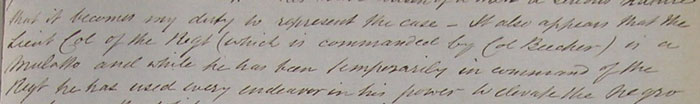 that it becomes my duty to represent the case – It also appears that the
Lieut Col of the Regt (which is commanded by Col Beecher) is a
Mulatto and while he has been temporarily in command of the
Regt he has used every endeavor in his power to elevate the Negro